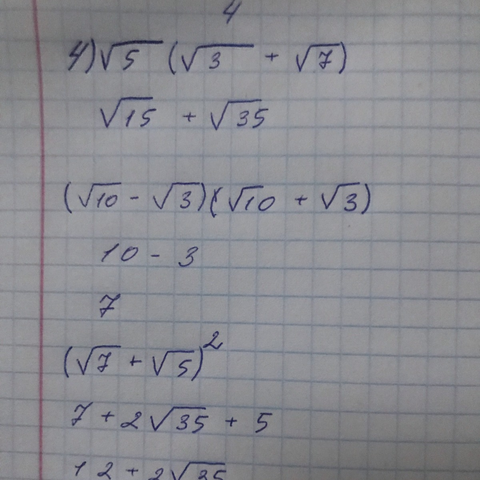 4
4) √5 (√3 + √7)
√15 + √35
(√10 - √3)(√10 + √3)
10 - 3
7
(√7 + √5)²
7 + 2√35 + 5
12 + 2√35